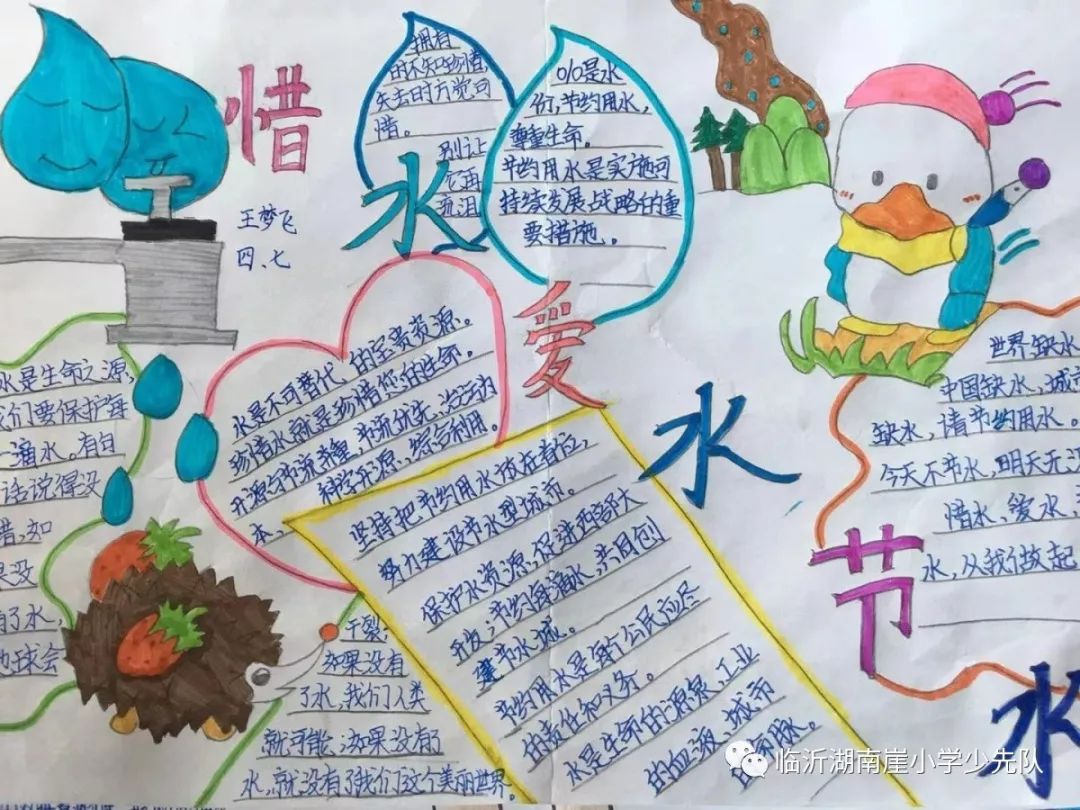 惜
水
爱
水
节
水
王梦飞
四、七
拥有
时不知珍惜,
失去时方觉可
惜。
别让
它再
流泪
是水
份,节约用水,
尊重生命。
节约用水是实施可
持续发展战略的重
要措施。
水是不可替代的至宝资源。
珍惜水就是珍惜您的生命。
开源与节流并重,节流优先、治污为
本、科学开源、综合利用。
坚持把节约用水放在首位,
努力建设节水型城市。
保护水资源,促进西部大
开发;节约每滴水,共同创
建节水城。
节约用水是每个公民应尽
的责任和义务。
水是生命的源泉、工业
的血液、城市
命脉。
世界缺水
中国缺水、城市
缺水,请节约用水。
今天不节水,明天无
惜水、爱水、
水,从我们做起
水是生命之源,
我们要保护每
一滴水。有句
话说得没
错,如
果没
有了水,
地球会
干裂;
如果没有
了水,我们人类
就可能;如果没有了
水,就没有了我们这个美丽世界。
临沂湖南崖小学少先队